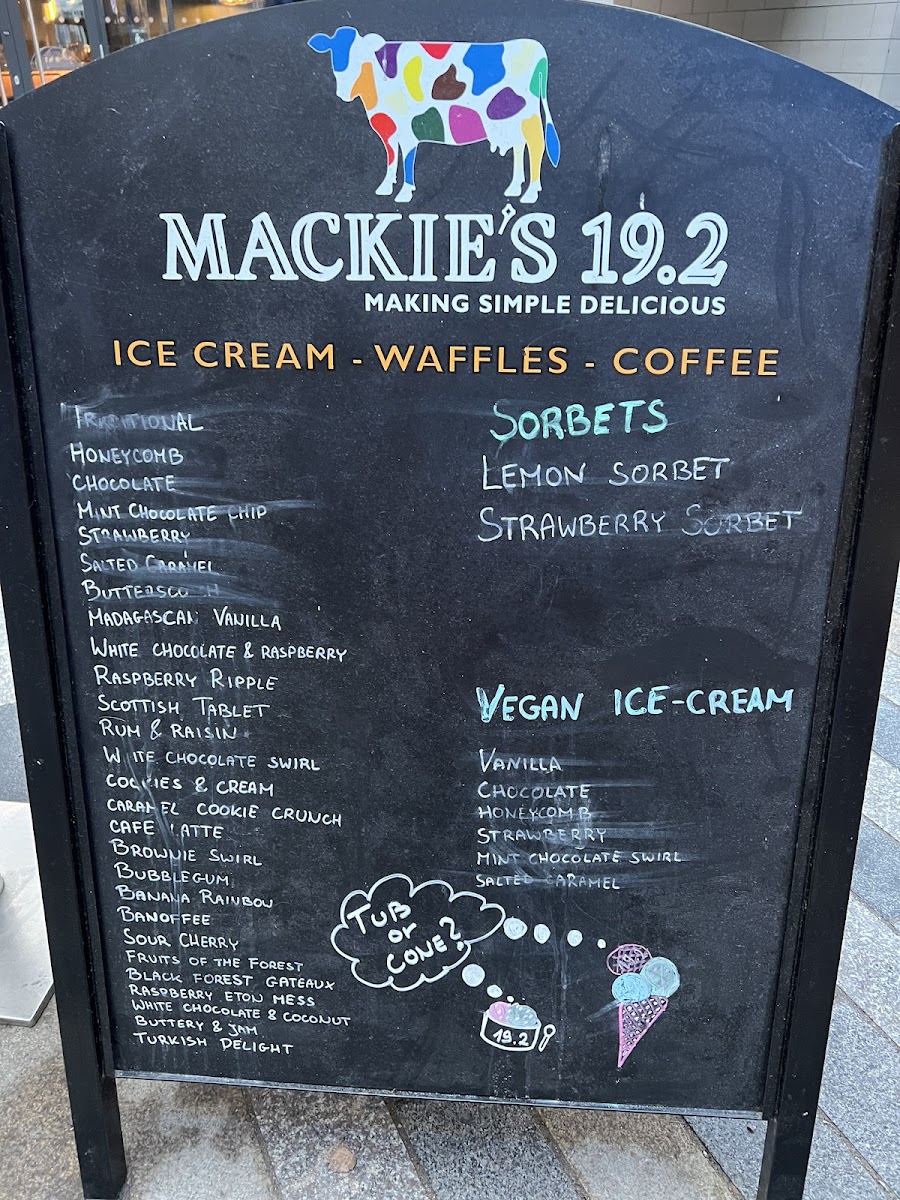 MACKIE'S 19.2
MAKING SIMPLE DELICIOUS
ICE CREAM - WAFFLES - COFFEE
TRADITIONAL
HONEYCOMB
CHOCOLATE
MINT CHOCOLATE CHIP
STRAWBERRY
SALTED CARAMEL
BUTTERSCOTCH
MADAGASCAN VANILLA
WHITE CHOCOLATE & RASPBERRY
RASPBERRY RIPPLE
SCOTTISH TABLET
RUM & RAISIN
WHITE CHOCOLATE SWIRL
COOKIES & CREAM
CARAMEL COOKIE CRUNCH
CAFE LATTE
BROWNIE SWIRL
BUBBLEGUM
BANANA RAINBOW
BANOFFEE
SOUR CHERRY
FRUITS OF THE FOREST
BLACK FOREST GATEAUX
RASPBERRY ETON MESS
WHITE CHOCOLATE & COCONUT
BUTTERY & JAM
TURKISH DELIGHT
SORBETS
LEMON SORBET
STRAWBERRY SORBET
VEGAN ICE-CREAM
VANILLA
CHOCOLATE
HONEYCOMB
STRAWBERRY
MINT CHOCOLATE SWIRL
SALTED CARAMEL
TUB
or
CONE?
19.2